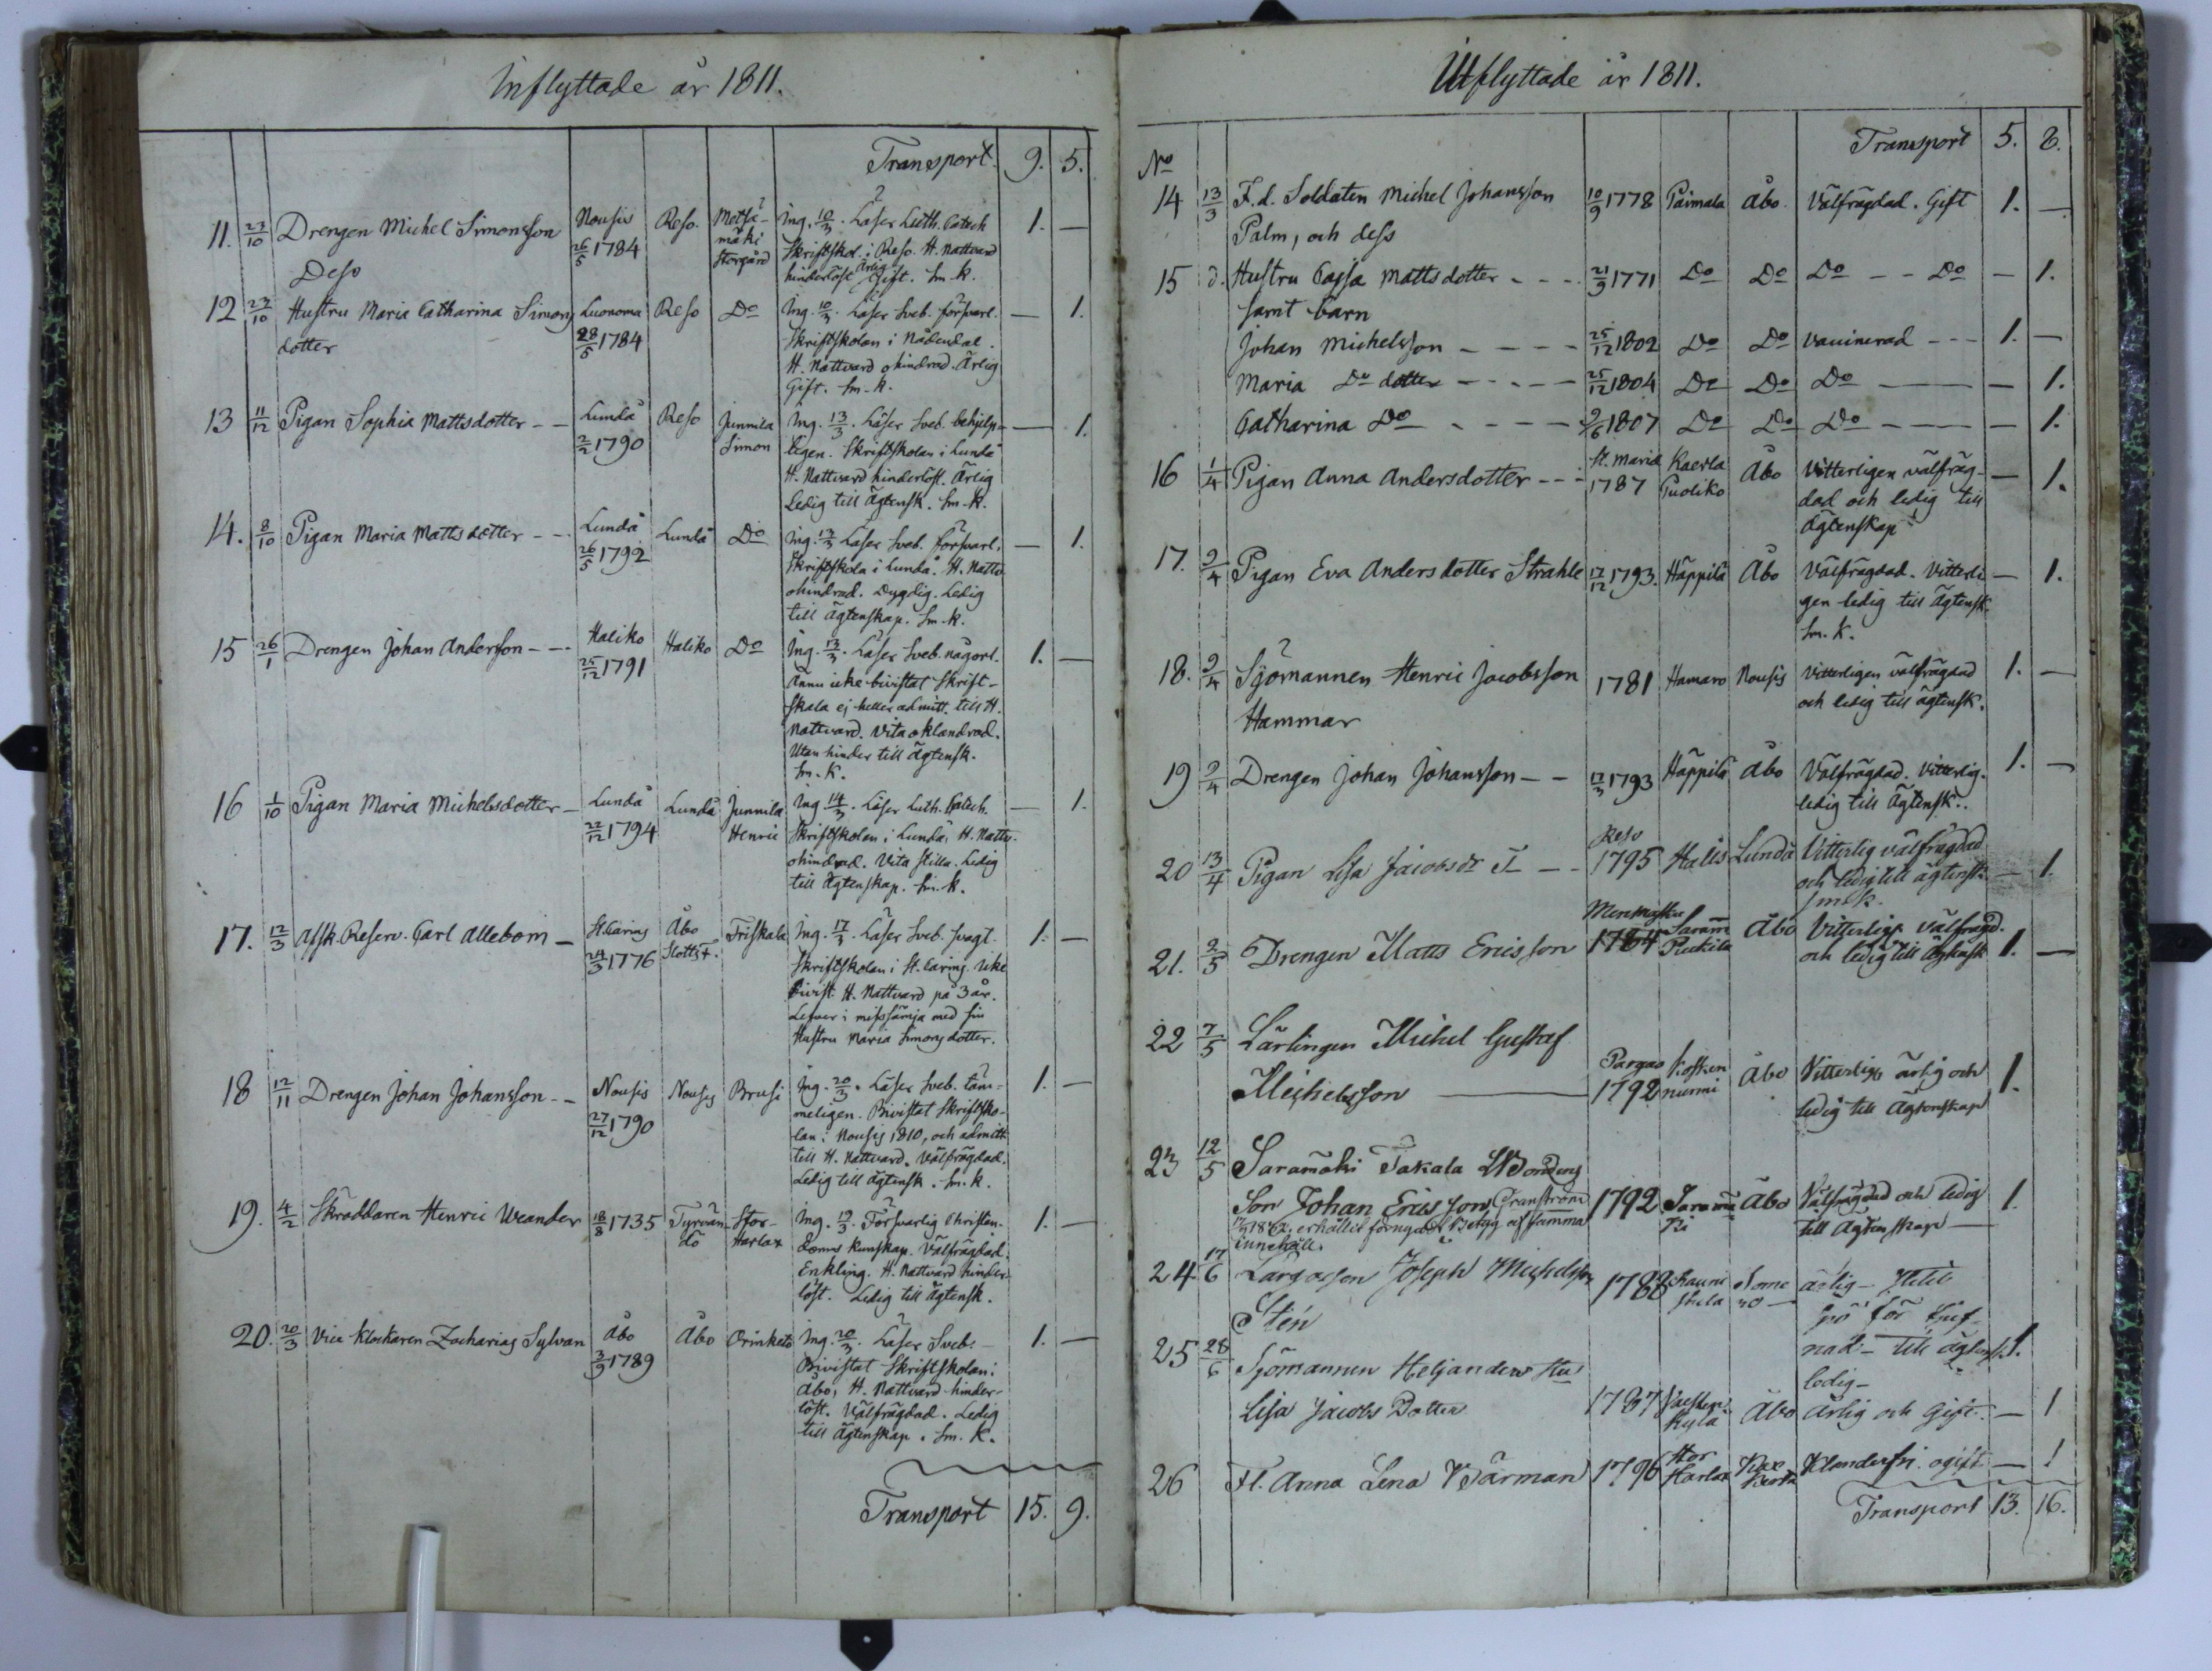 Inflyttade år 1811.
Transport. 9. 5.
11. 27/10 Drengen Michel Simonsson Nousis Reso. Metsä- Ing. 10/3. Läser Luth. Catech 1. —
Deso 26/5 1784 mäki Skriftskol. i Reso. H. Nattvard
Storgård hinderlöst Ärlig Gift. Sm. K.
12 27/10 Hustru Maria Catharina Simons Luonoma Reso Do Ing. 10/3. Läser Sveb. försvarl. — 1.
dotter 28/5 1784 Skriftskolan i Nådendal.
H. Nattvard ohindrad. Ärlig
Gift. Sm. K.
13 11/12 Pigan Sophia Mattsdotter — Lundå Reso Junnila Ing. 13/3. Läser Sveb. behjelp- — 1.
2/2 1790 Simon ligen. Skriftskolan i Lundå
H. Nattvard hinderlöst. Ärlig
Ledig till Ägtensk. Sm. K.
14. 8/10 Pigan Maria Mattsdotter — Lundå Lundå Do Ing. 13/3 Läser Sveb. försvarl. — 1.
26/5 1792 Skriftskola i Lundå. H. Nattv.
ohindrad. Dygdig. Ledig
till Ägtenskap. Sm. K.
15 26/1 Drengen Johan Andersson — Haliko Haliko Do Ing. 13/3. Läser Sveb. någorl. 1. —
25/12 1791 Ännu icke bivistat Skrift-
skola ej heller admitt. till H.
Nattvard. Vita oklandrad.
Utan hinder till Ägtensk.
Sm. K.
16 1/10 Pigan Maria Michelsdotter — Lundå Lundå Junnila Ing 14/3. Läser Luth. Catech. — 1.
22/12 1794 Henric Skriftskolan i Lundå, H. Nattv.
ohindrad. Vita stilla. Ledig
till Ägtenskap. Sm. K.
17. 12/3 Afsk. Reserv. Carl Allebom — St. Carins Åbo Friskala Ing. 17/3. Läser Sveb. svagt. 1. —
24/3 1776 Slotts F. Skriftskolan i St. Carins. Icke
bivist. H. Nattvard på 3 år.
Lefver i missämja med sin
Hustru Maria Simonsdotter.
18 12/11 Drengen Johan Johansson — Nousis Nousis Brusi Ing. 20/3. Läser Sveb. täm- 1. —
27/12 1790 meligen. Bivistat Skriftsko-
lan i Nousis 1810, och admitt
till H. Nattvard. Välfrägdad.
Ledig till Ägtensk. Sm. K.
19. 4/2 Skräddaren Henric Weander 18/8 1735 Tyrvän Stor- Ing. 19/3. Försvarlig Christen- 1. —
dö Harlax doms kunskap. Välfrägdad.
Enkling. H. Nattvard hinder-
löst. Ledig till Ägtensk.
20. 20/3 Vice Klockaren Zacharias Sylvan Åbo Åbo Orinketo Ing. 20/3. Läser Sveb. 1. —
3/9 1789 Bivistat Skriftskolan i
Åbo, H. Nattvard hinder-
löst. Välfrägdad. Ledig
till Ägtenskap. Sm. K.
Transport 15. 9.
Utflyttade år 1811.
No Transport 5. 8.
14 13/3 F.d. Soldaten Michel Johansson 10/9 1778 Paimala Åbo. Välfrägdad. Gift 1. —
Palm, och dess
15 d. Hustru Cajsa Mattsdotter - - - 21/9 1771 Do Do Do - - Do — 1.
samt barn
Johan Michelsson - - - - 25/12 1802 Do Do vaccinerad - - - 1. —
Maria Do dotter - - - - 25/12 1804 Do Do Do — — 1.
Catharina Do - - - - 9/6 1807 Do Do Do — — 1.
16 1/4 Pigan Anna Andersdotter - - - St. Mariæ Kaerla Åbo Vitterligen välfräg- — 1.
1787 Puoliko dad och ledig till
Ägtenskap
17. 9/4 Pigan Eva Andersdotter Strahle 17/12 1793. Häppilä Åbo Välfrägdad. Vitterli — 1.
gen ledig till Ägtensk.
Sm. K.
18. 9/4 Sjömannen Henric Jacobsson 1781 Hamaro Nousis Vitterligen välfrägdad 1. —
Hammar och ledig till ägtensk.
19 9/4 Drengen Johan Johansson — 17/3 1793 Häppilä Åbo Välfrägdad. Vitterlig. 1. —
ledig till Ägtensk.
20 13/4 Pigan Lisa Jacobsdr Reso 1795 Halis Lundå Vitterlig välfrägdad
och ledig till ägtensk. — 1.
Sm. K.
21. 2/5 Drengen Matts Ericsson 1784 Åbo Vitterligt välfrägd.
och ledig till Ägtensk 1. —
22 7/5 Lärlingen Michel Gustaf
Michelsson — Pargas 1792 Kosken nurmi Åbo Vitterligt ärlig och 1.
ledig till Ägtenskap
23 12/5 Saramäki Takala Bondens
Son Johan Ericsson Granström 1792 Saramä Åbo Välfrägdad och ledig 1.
ki till Ägtenskap —
erhållit förnyadt Betyg af samma
innehåll.
24 17/6 Joseph Michelsson 1788 Rauni Some ärlig —
Stén stula ro — för tjuf-
nad — till ägtensk. 1.
ledig —
25 28/6 Sjömannen Heljanders Hu
Lisa Jacobs Dotter 1787 kylä Åbo Ärlig och Gift. — 1
26 Fl. Anna Lena Wärman 1796 Stor Harlax Klanderfri. ogift — 1
Transport 13. 16.